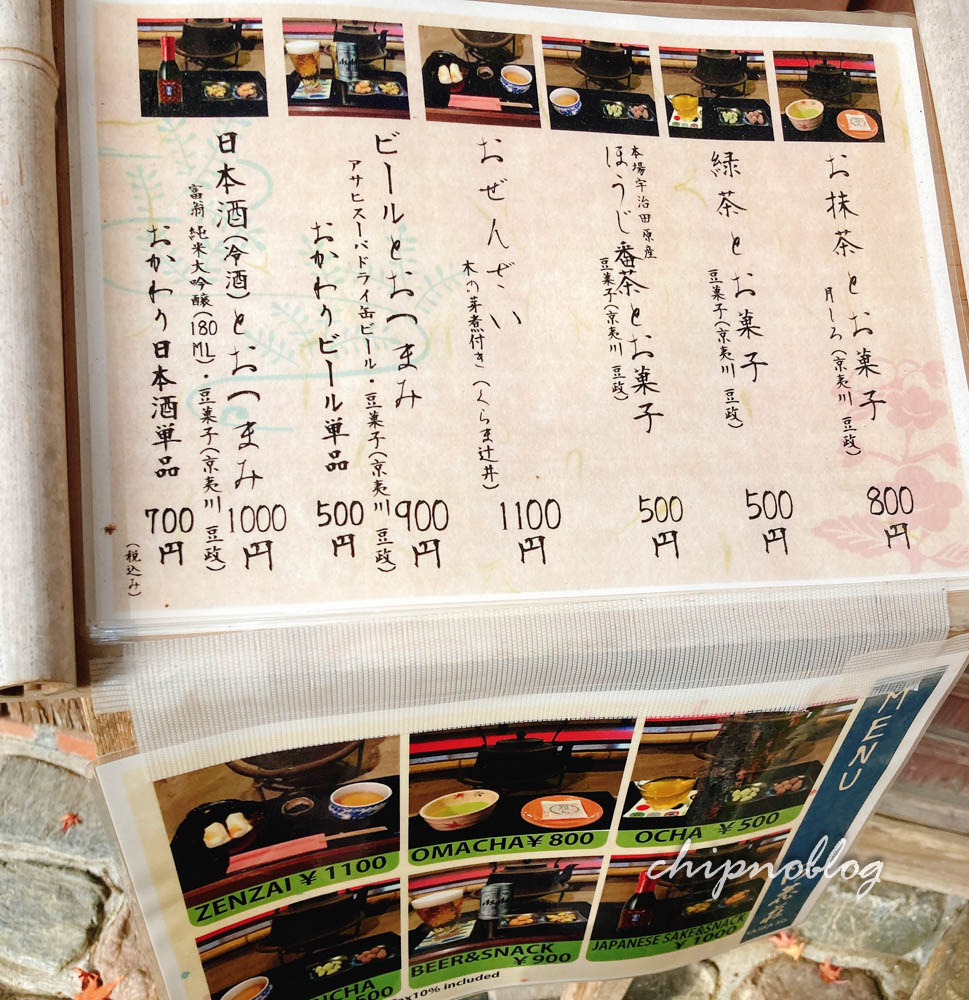 お抹茶とお菓子
月しろ(京夷川 豆政)
800円
緑茶とお菓子
豆菓子(京夷川 豆政)
500円
本場宇治田原産
ほうじ番茶とお菓子
豆菓子(京夷川 豆政)
500円
おぜんざい
木の芽煮付き(くらま辻井)
1100円
ビールとおつまみ
アサヒスーパドライ缶ビール・豆菓子(京夷川 豆政)
900円
おかわりビール単品
500円
日本酒(冷酒)とおつまみ
富翁 純米大吟醸(180ML)・豆菓子(京夷川 豆政)
1000円
おかわり日本酒単品
700円
(税込み)
MENU
ZENZAI ¥1100
OMACHA ¥800
OCHA ¥500
BEER&SNACK
¥900
JAPANESE SAKE&SNACK
¥1000
10% included
Asahi
chipnoblog